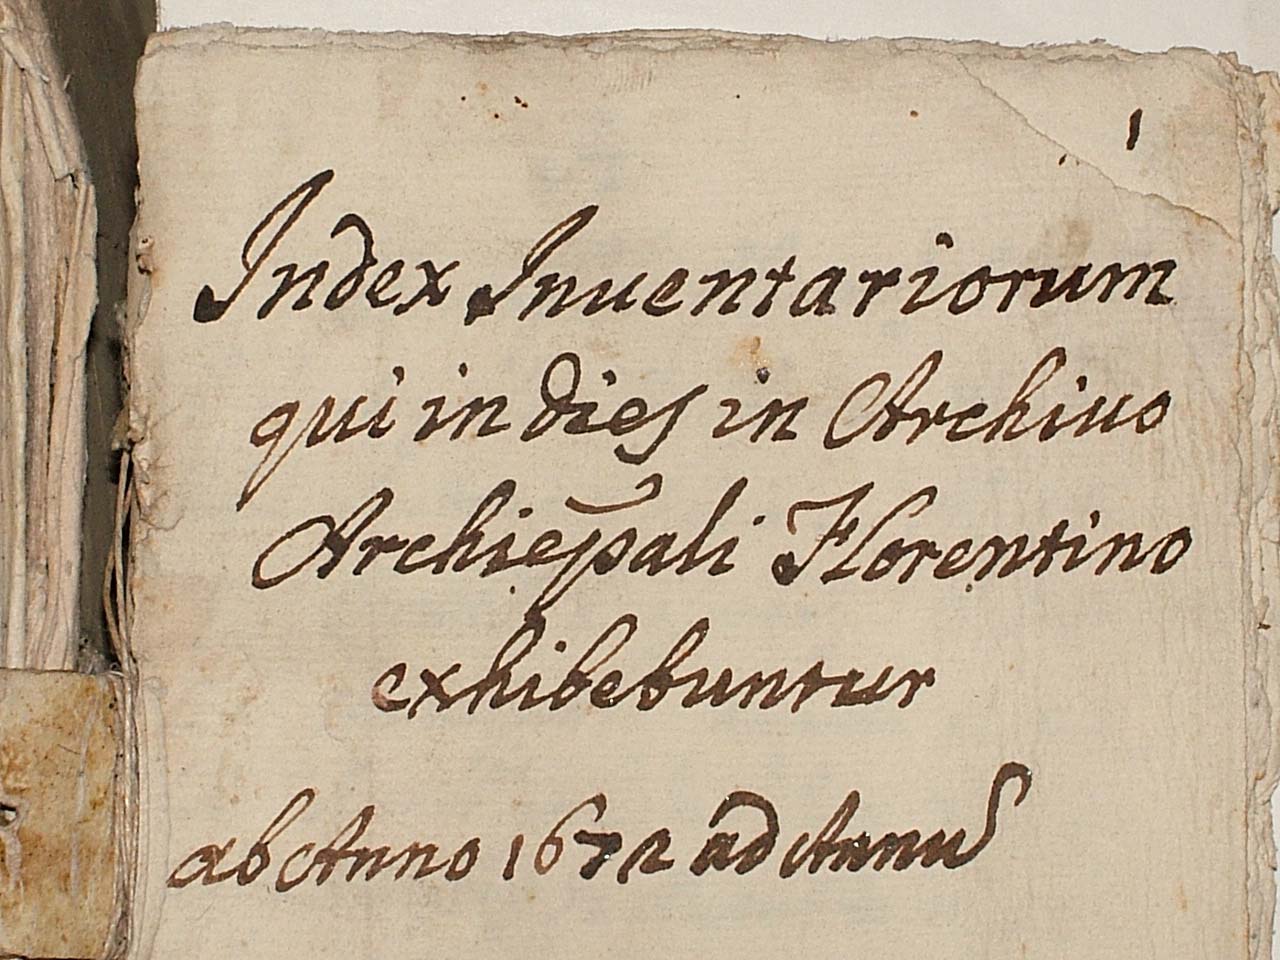 1
Index Inuentariorum
qui in dies in Archiuo
Archiep̄ali Florentino
exhibebuntur
ab Anno 1672 ad Annũ